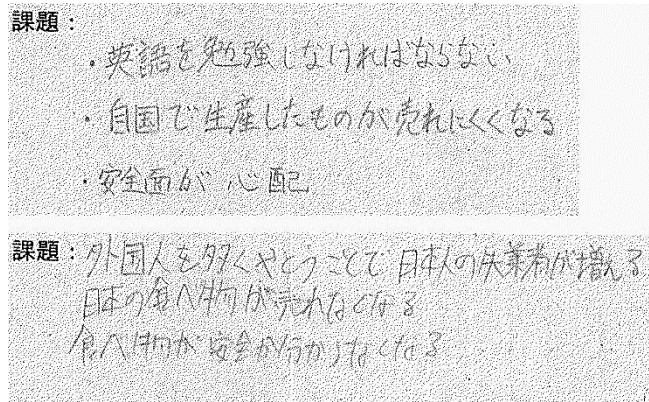 課題：
・英語を勉強しなければならない
・自国で生産したものが売れにくくなる
・安全面が心配
課題：外国人を多くやとうことで日本人の失業者が増える
日本の食べ物が売れなくなる
食べ物が安全か分からなくなる